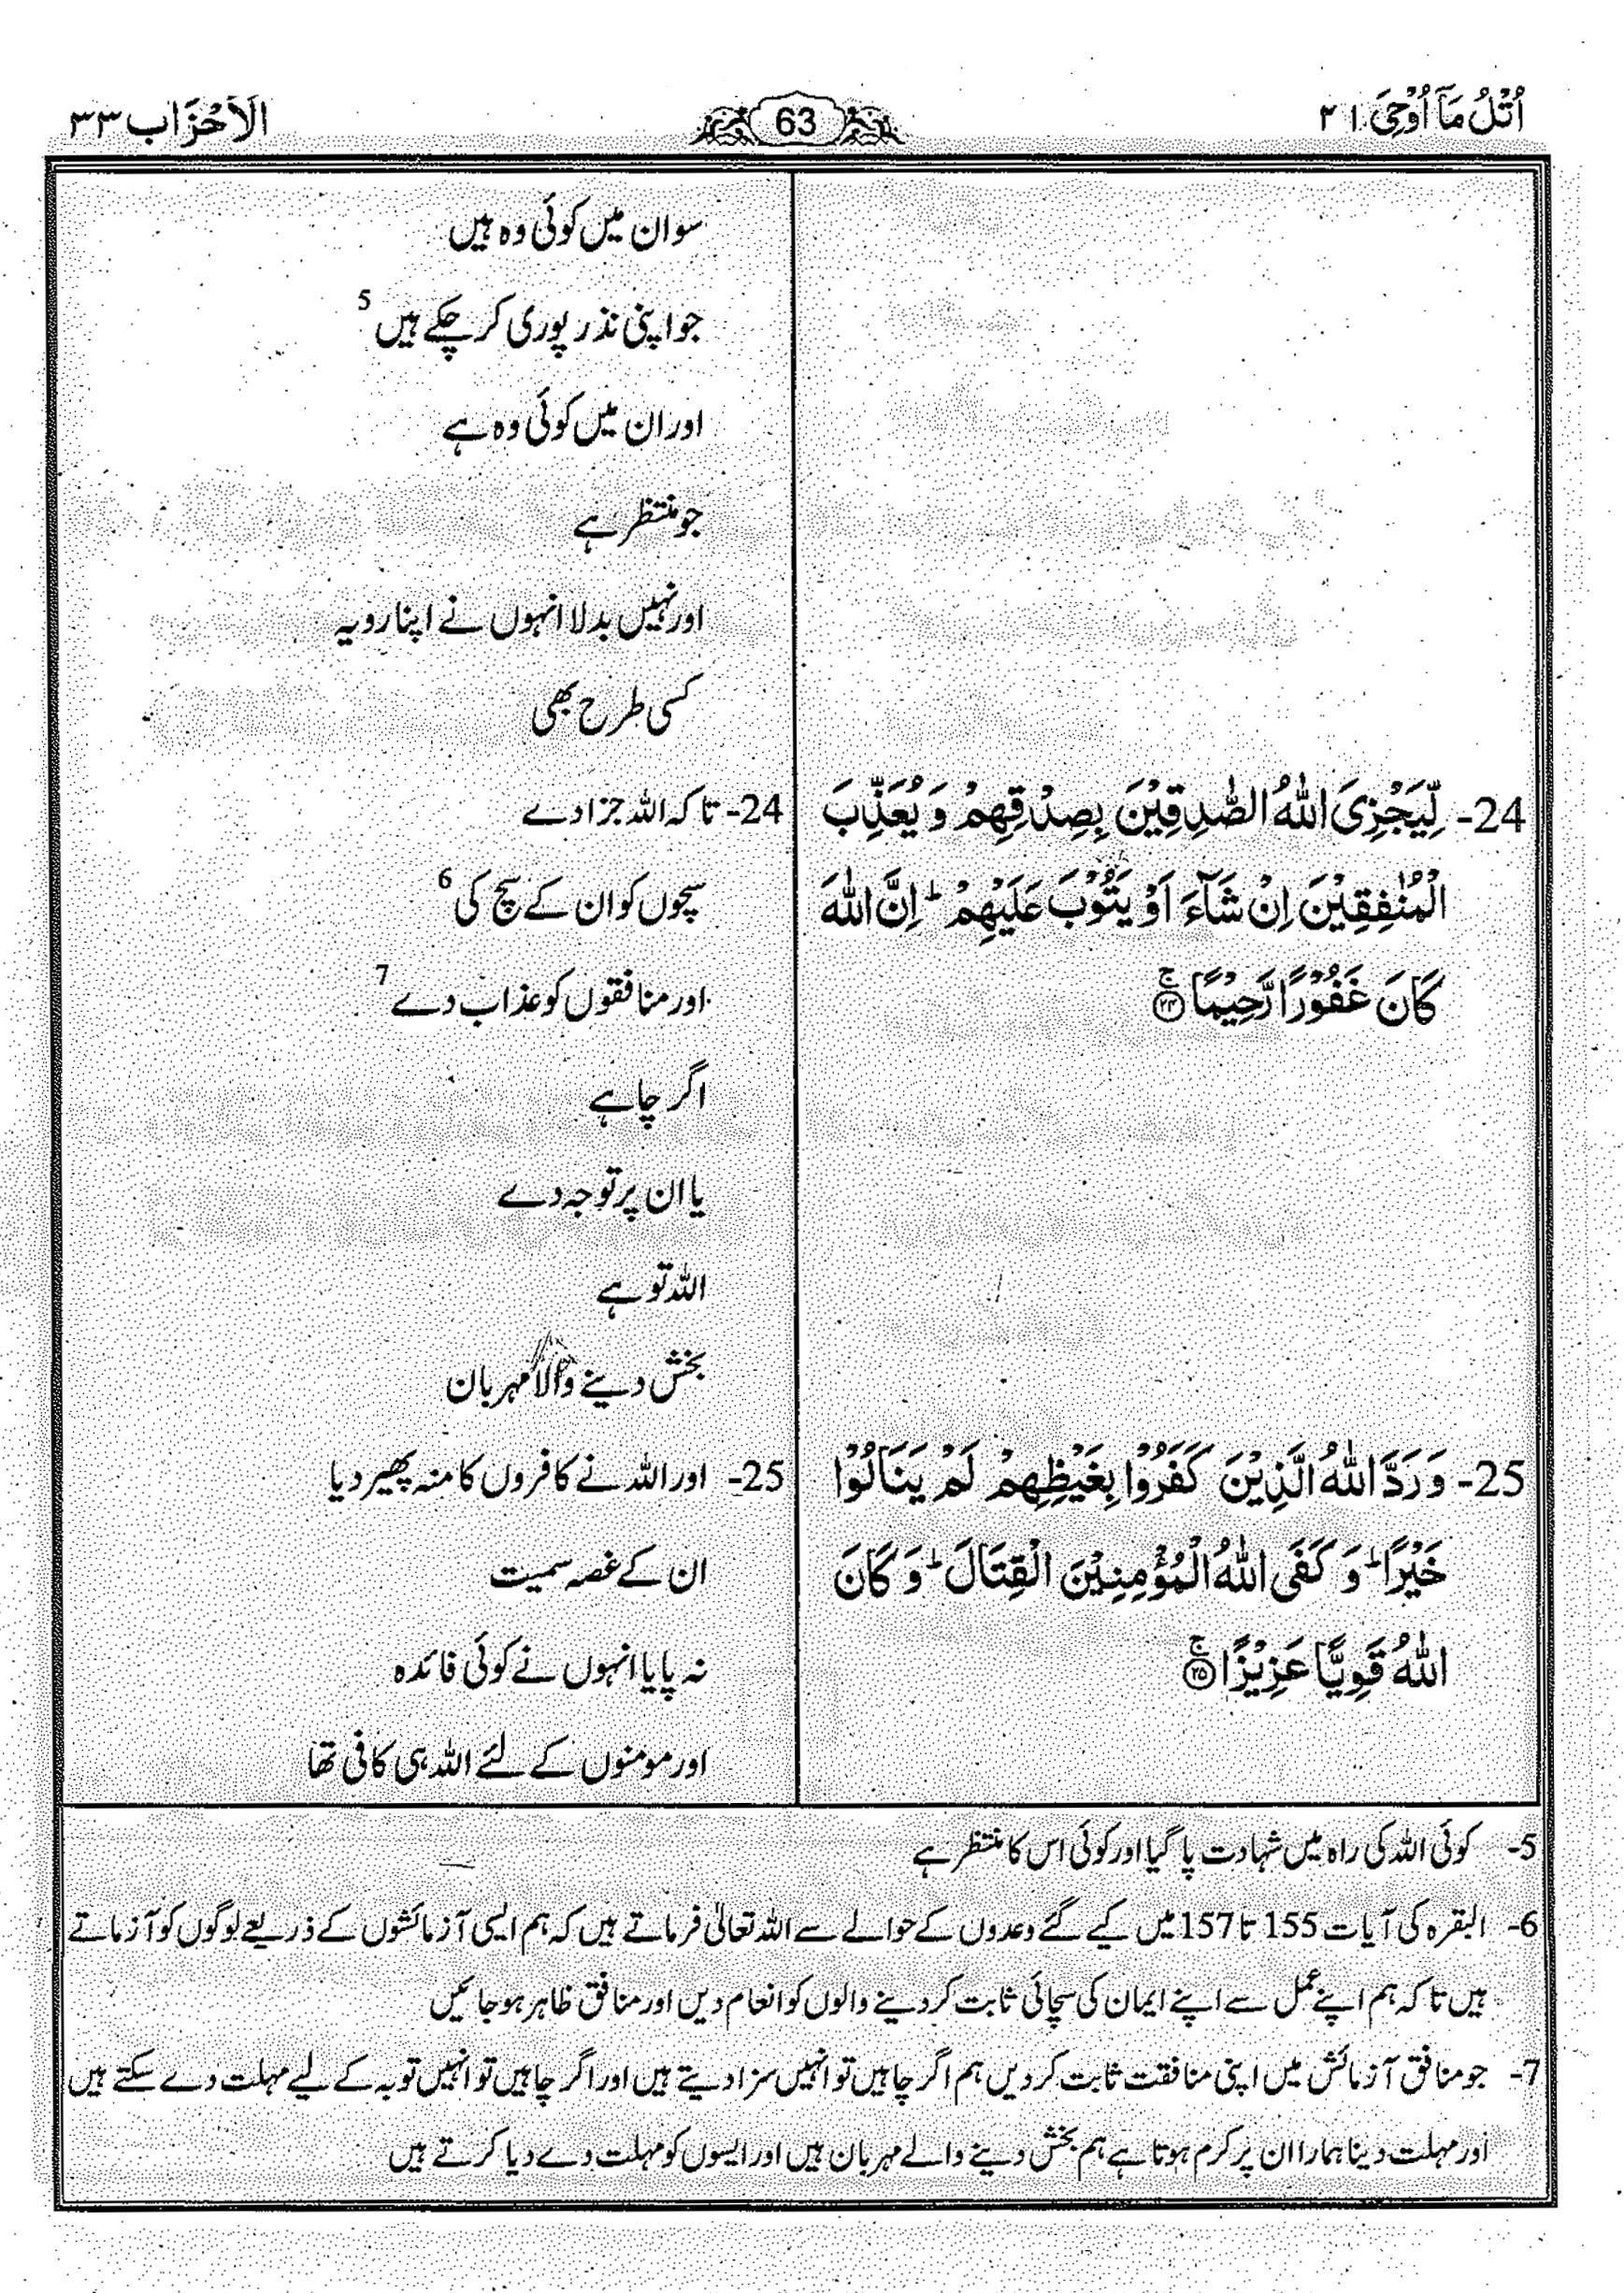 اُتْلُ مَاۤ اُوْحِیَ ۲۱
63
الْاَحْزَاب ۳۳
سو ان میں کوئی وہ ہیں
جو اپنی نذر پوری کر چکے ہیں 5
اور ان میں کوئی وہ ہے
جو منتظر ہے
اور نہیں بدلا انہوں نے اپنا رویہ
کسی طرح بھی
24- لِّيَجْزِيَ اللّٰهُ الصّٰدِقِيْنَ بِصِدْقِهِمْ وَ يُعَذِّبَ
الْمُنٰفِقِيْنَ اِنْ شَآءَ اَوْ يَتُوْبَ عَلَيْهِمْ ؕ اِنَّ اللّٰهَ
كَانَ غَفُوْرًا رَّحِيْمًا ۚ ۲۴
24- تا کہ اللہ جزا دے
سچوں کو ان کے سچ کی 6
اور منافقوں کو عذاب دے 7
اگر چاہے
یا ان پر توجہ دے
اللہ تو ہے
بخش دینے والا مہربان
25- وَ رَدَّ اللّٰهُ الَّذِيْنَ كَفَرُوْا بِغَيْظِهِمْ لَمْ يَنَالُوْا
خَيْرًا ؕ وَ كَفَى اللّٰهُ الْمُؤْمِنِيْنَ الْقِتَالَ ؕ وَ كَانَ
اللّٰهُ قَوِيًّا عَزِيْزًا ۚ ۲۵
25- اور اللہ نے کافروں کا منہ پھیر دیا
ان کے غصہ سمیت
نہ پایا انہوں نے کوئی فائدہ
اور مومنوں کے لئے اللہ ہی کافی تھا
5- کوئی اللہ کی راہ میں شہادت پا گیا اور کوئی اس کا منتظر ہے
6- البقرہ کی آیات 155 تا 157 میں کیے گئے وعدوں کے حوالے سے اللہ تعالیٰ فرماتے ہیں کہ ہم ایسی آزمائشوں کے ذریعے لوگوں کو آزماتے
ہیں تا کہ ہم اپنے عمل سے اپنے ایمان کی سچائی ثابت کر دینے والوں کو انعام دیں اور منافق ظاہر ہو جائیں
7- جو منافق آزمائش میں اپنی منافقت ثابت کر دیں ہم اگر چاہیں تو انہیں سزا دیتے ہیں اور اگر چاہیں تو انہیں توبہ کے لیے مہلت دے سکتے ہیں
اور مہلت دینا ہمارا ان پر کرم ہوتا ہے ہم بخش دینے والے مہربان ہیں اور ایسوں کو مہلت دے دیا کرتے ہیں